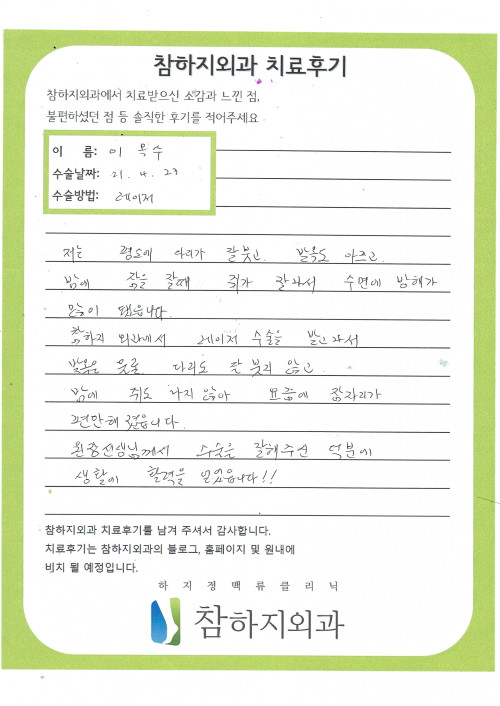 참하지외과 치료후기
참하지외과에서 치료받으신 소감과 느낀 점,
불편하셨던 점 등 솔직한 후기를 적어주세요
이 름: 이 목수
수술날짜: 21. 4. 23
수술방법: 레이저
저는 평소에 다리가 잘 붓고. 발목도 아프고.
밤에 잠을 잘때 쥐가 잘나서 수면에 방해가
많이 됐습니다.
참하지 외과에서 레이저 수술을 받고나서
발목은 물론 다리도 잘 붓지 않고.
밤에 쥐도 나지 않아 요즘에 잠자리가
편안해 졌습니다.
원장선생님께서 수술을 잘해주신 덕분에
생활에 활력을 얻었습니다!!
참하지외과 치료후기를 남겨 주셔서 감사합니다.
치료후기는 참하지외과의 블로그, 홈페이지 및 원내에
비치 될 예정입니다.
하지정맥류클리닉
참하지외과